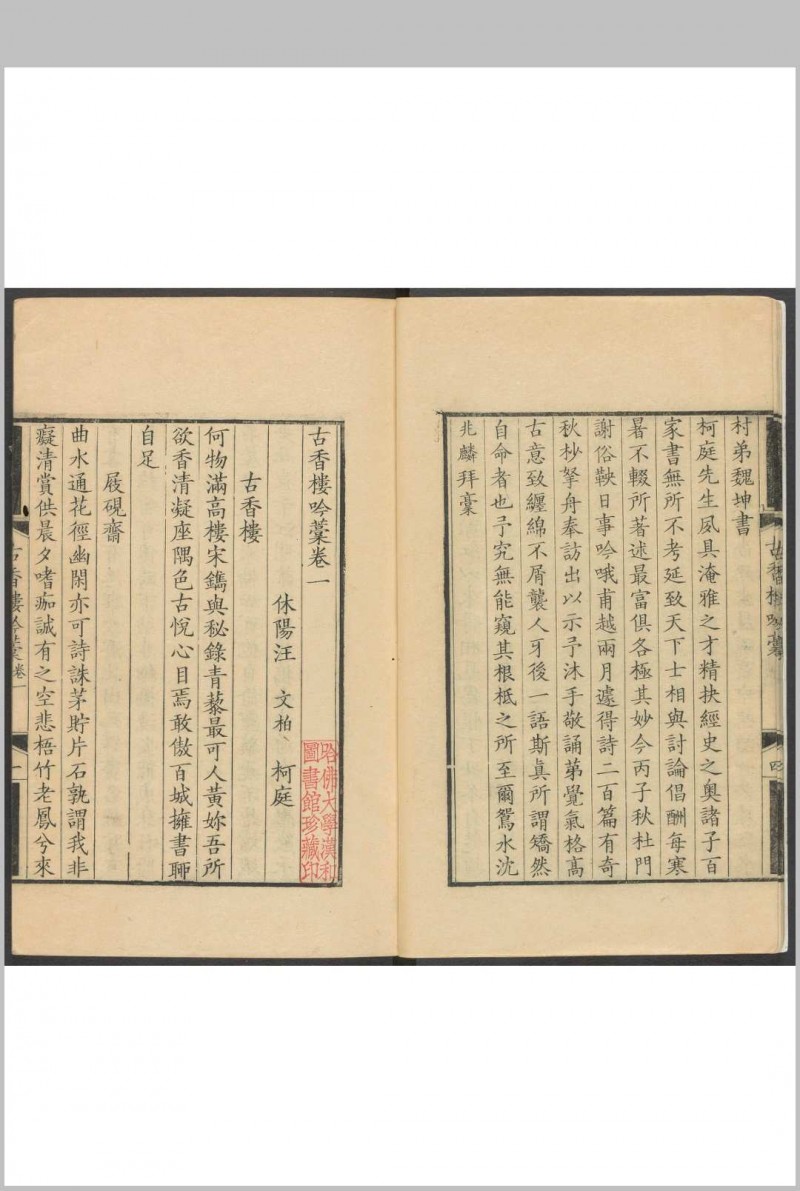 村弟魏坤書
柯庭先生夙具淹雅之才精抉經史之奧諸子百
家書無所不考延致天下士相與討論倡酬每寒
暑不輟所著述最富俱各極其妙今丙子秋杜門
謝俗鞅日事吟哦甫越兩月遽得詩二百篇有奇
秋杪拏舟奉訪出以示予沐手敬誦苐覺氣格高
古意致纏綿不屑襲人牙後一語斯眞所謂矯然
自命者也予究無能窺其根柢之所至爾鴛水沈
兆麟拜稾
古香樓吟藳
四
古香樓吟藳卷一
休陽汪 文柏 柯庭
古香樓
何物滿高樓宋鐫與秘錄青藜最可人黃妳吾所
欲香清凝座隅色古悅心目焉敢傲百城擁書聊
自足
屐硯齋
曲水通花徑幽閑亦可詩誅茅貯片石孰謂我非
癡清賞供晨夕嗜痂誠有之空悲梧竹老鳳兮來
古香樓吟藳卷一
一
哈佛大學漢和
圖書館珍藏印